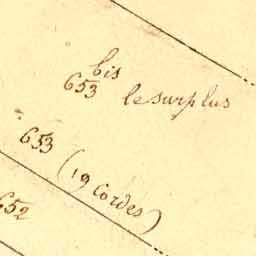 bis
653 le surplus
653 (19 Cordes)
652